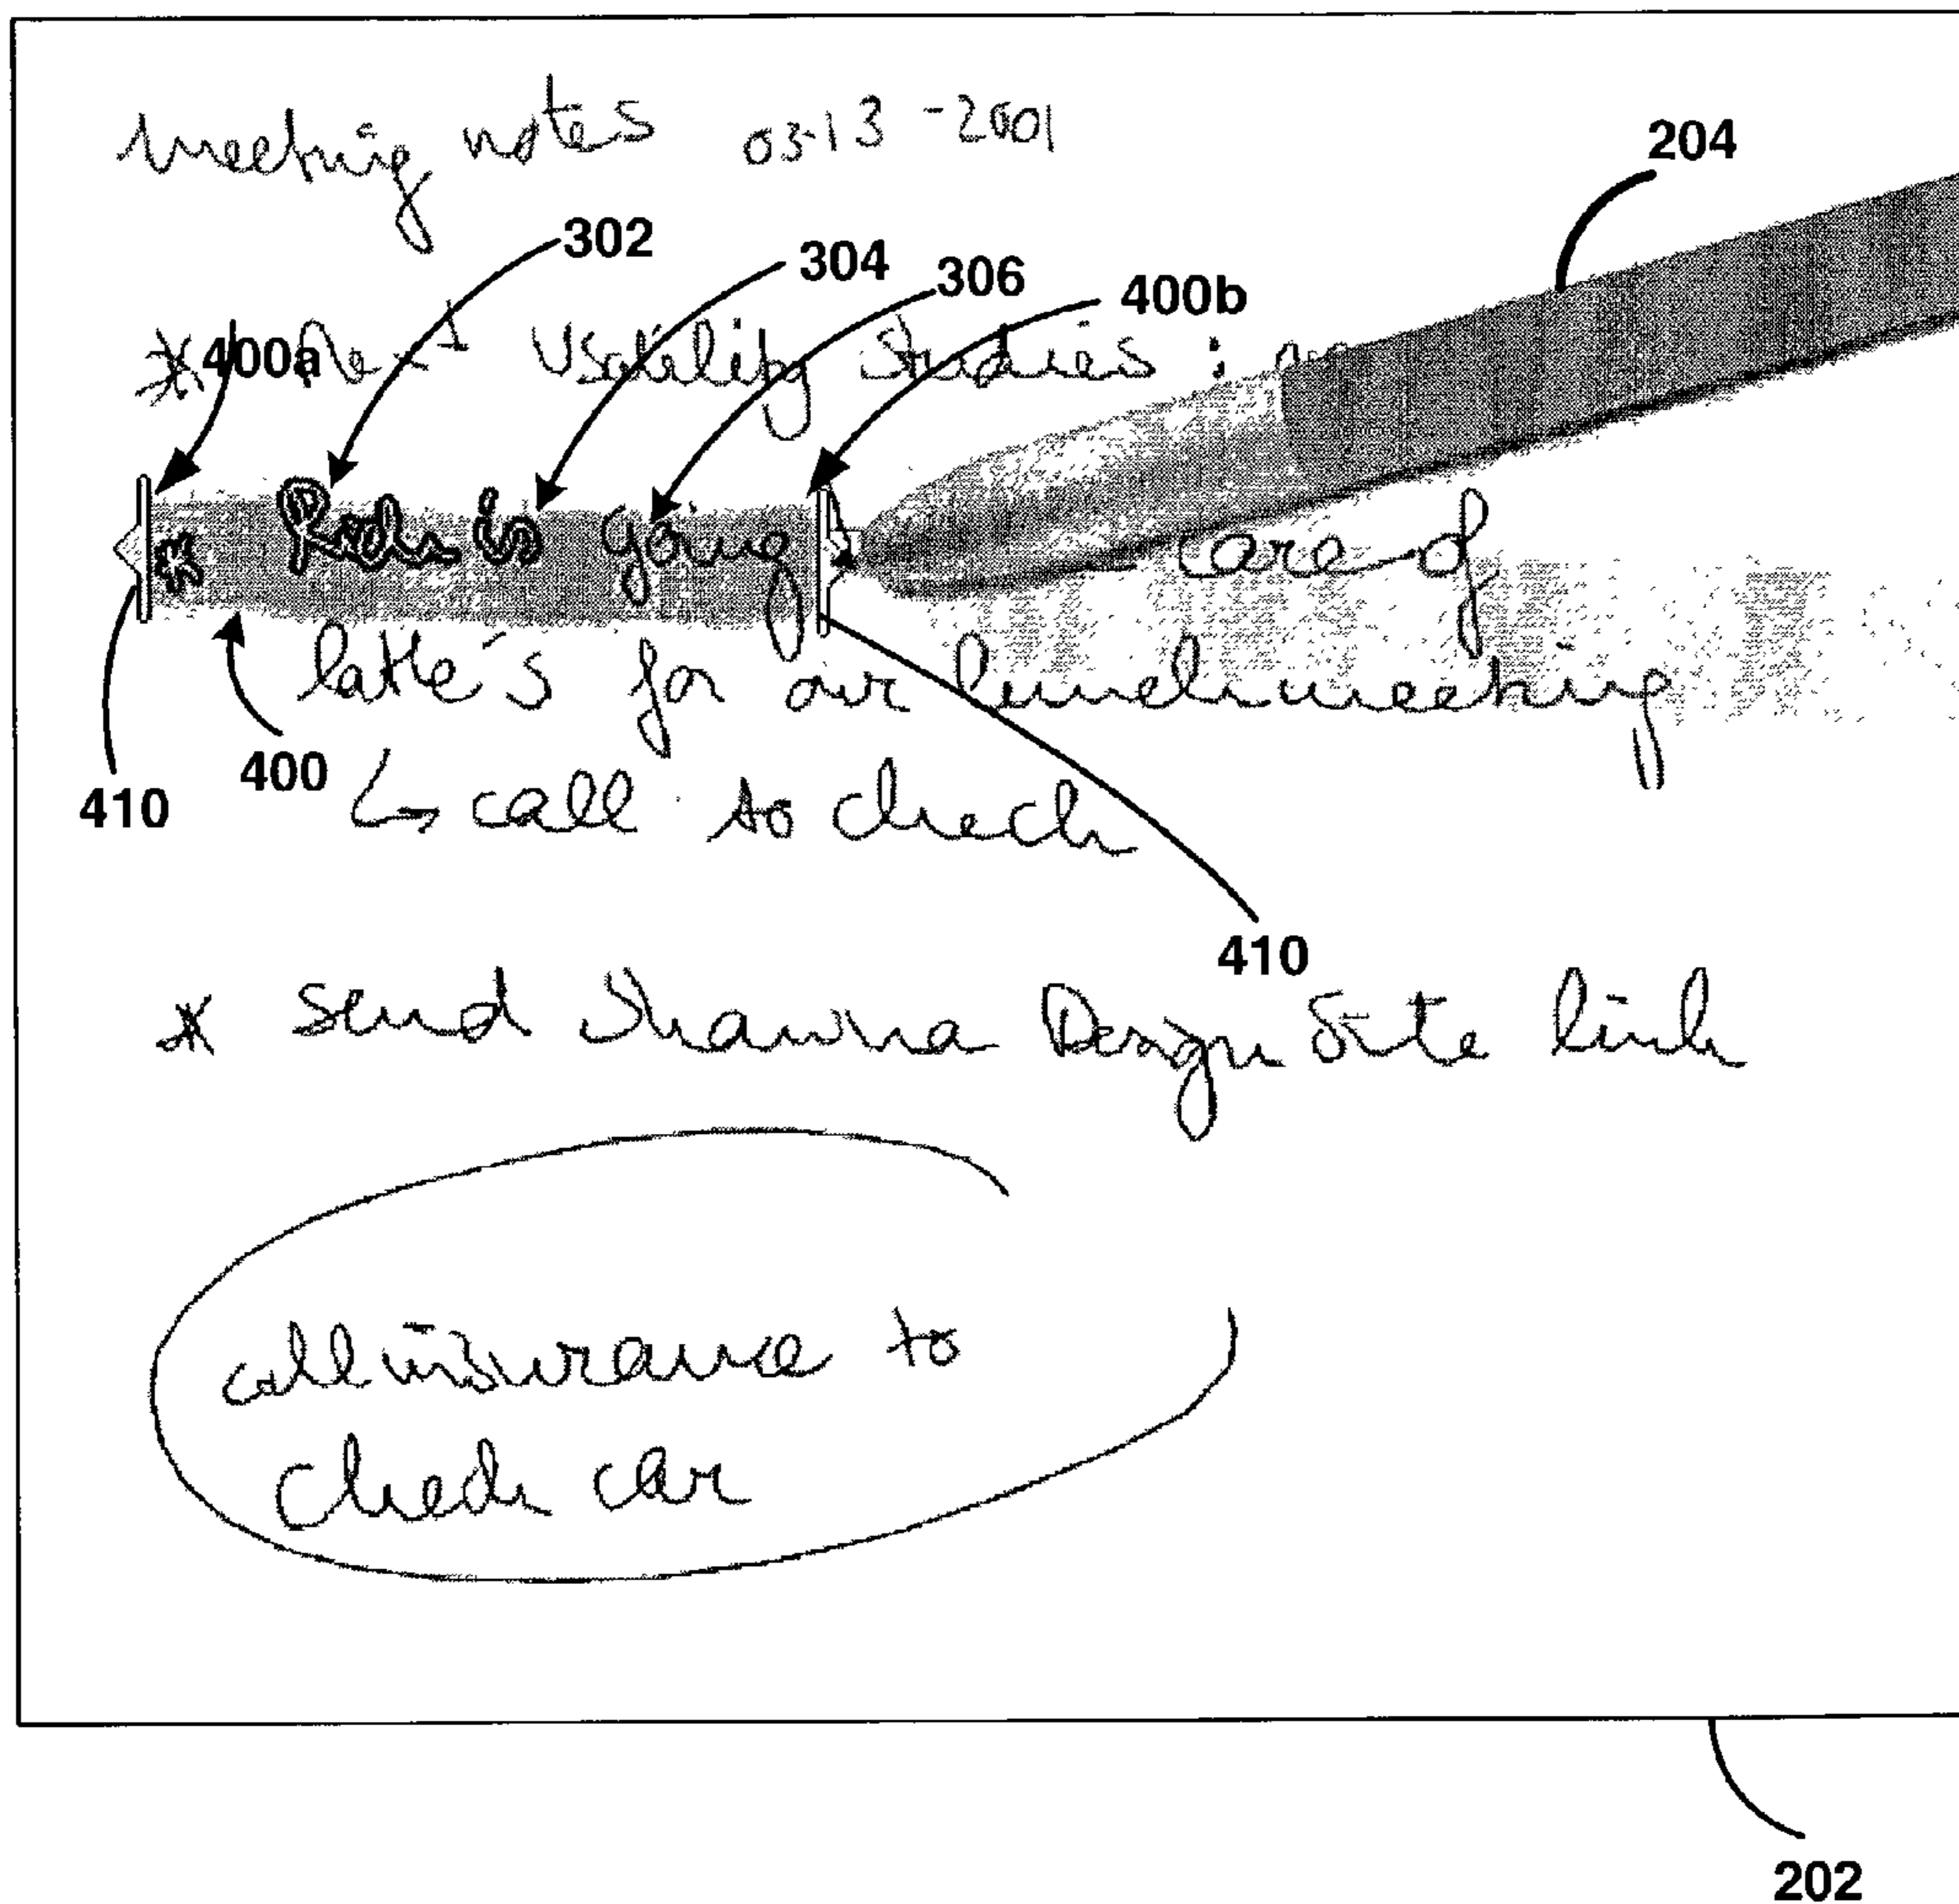 meeting notes 03-13-2001
204
302
304
306
400b
* 400a Next Usability Studies :
* Rich is going care of
latte's for our lunch meeting
410
400
↳ call to check
410
* Send Shawna Design Site link
call insurance to
check car
202